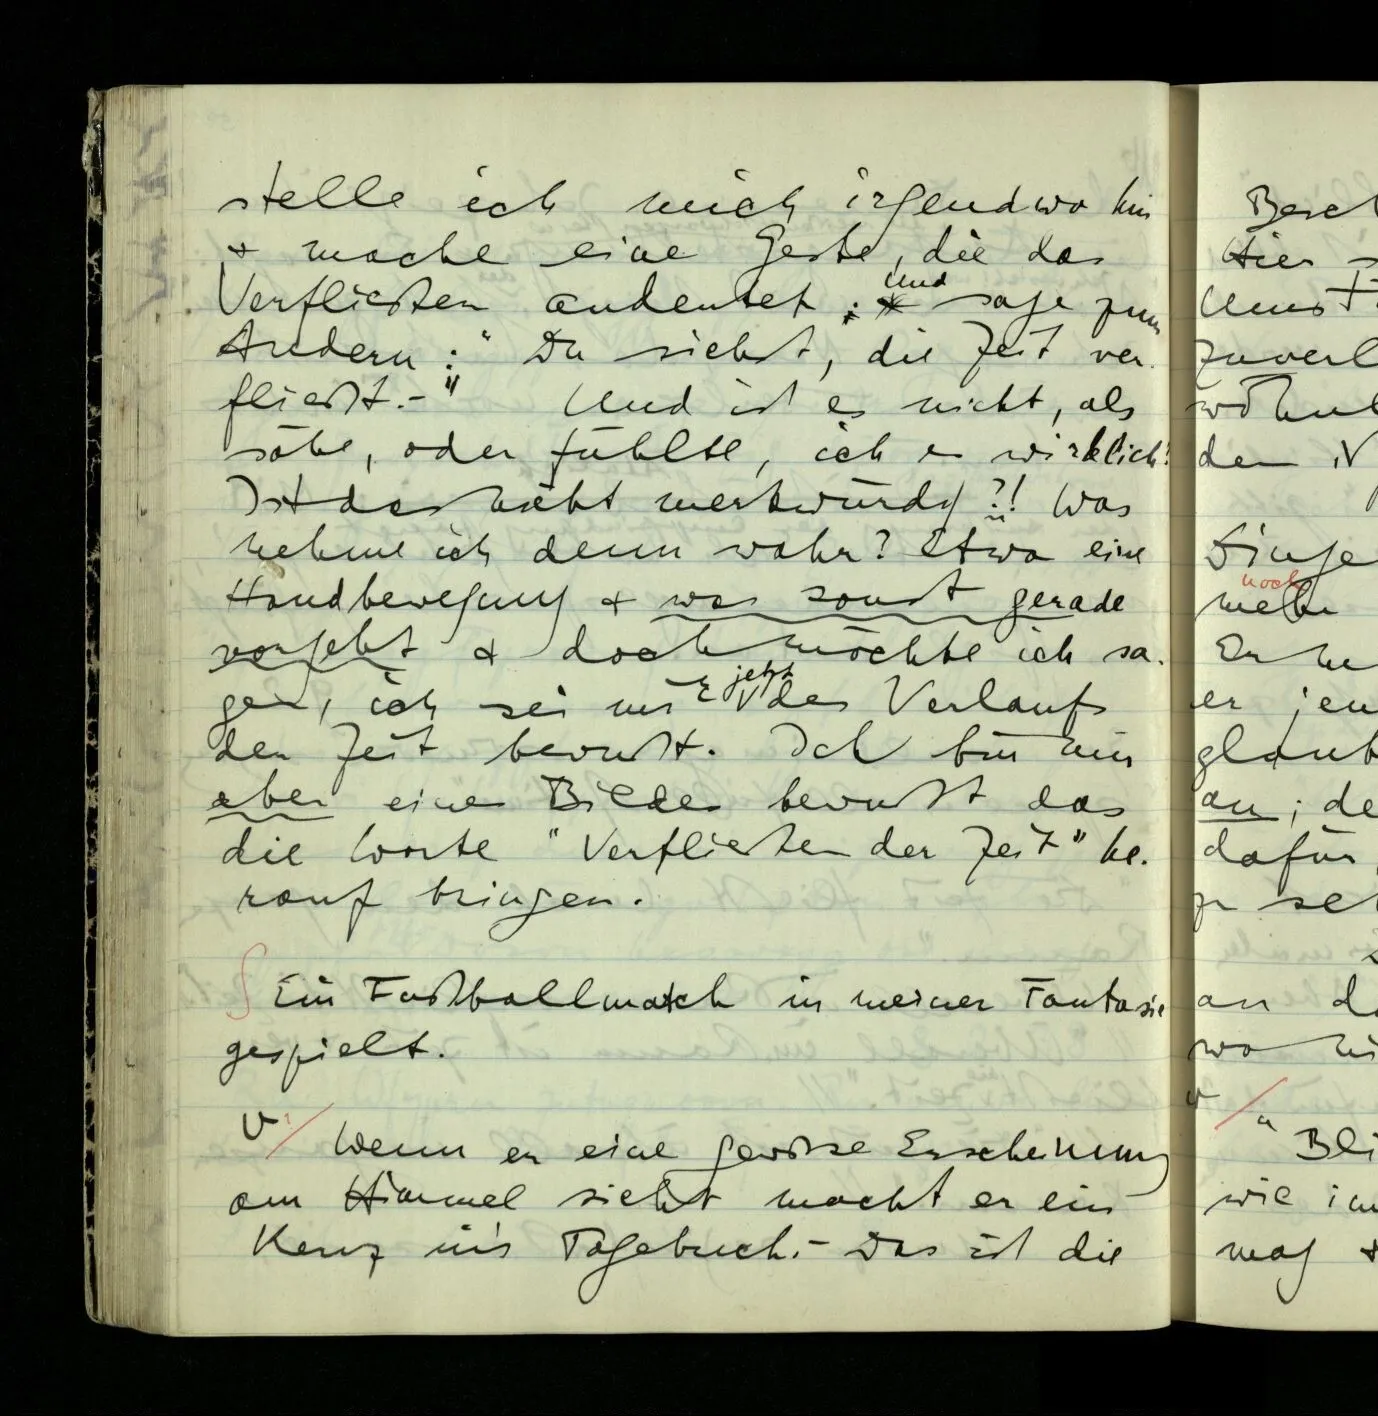 stelle ich mich irgendwo hin
& mache eine Geste, die das
Verfließen andeutet; und sage zum
Andern: "Du siehst, die Zeit ver-
fließt.–" Und ist es nicht, als
sähe, oder fühlte, ich es wirklich!
Ist das nicht merkwürdig?! Was
nehme ich denn wahr? Etwa eine
Handbewegung & was sonst gerade
vorgeht & doch möchte ich sa-
gen, ich sei mir jetzt des Verlaufs
der Zeit bewußt. Ich bin mir
aber eines Bildes bewußt das
die Worte "Verfließen der Zeit" he-
rauf bringen.
∫ Ein Fußballmatch in meiner Fantasie
gespielt.
V / Wenn er eine gewisse Erscheinung
am Himmel sieht macht er ein
Kreuz in's Tagebuch.– Das ist die
Besch
Hier
Uns
zuverl
wöhnl
den N
Dinge
noch
mehr
Er
er jen
glaub
an; de
dafür,
zu se
an d
wo
/ "Bli
wie im
mag &